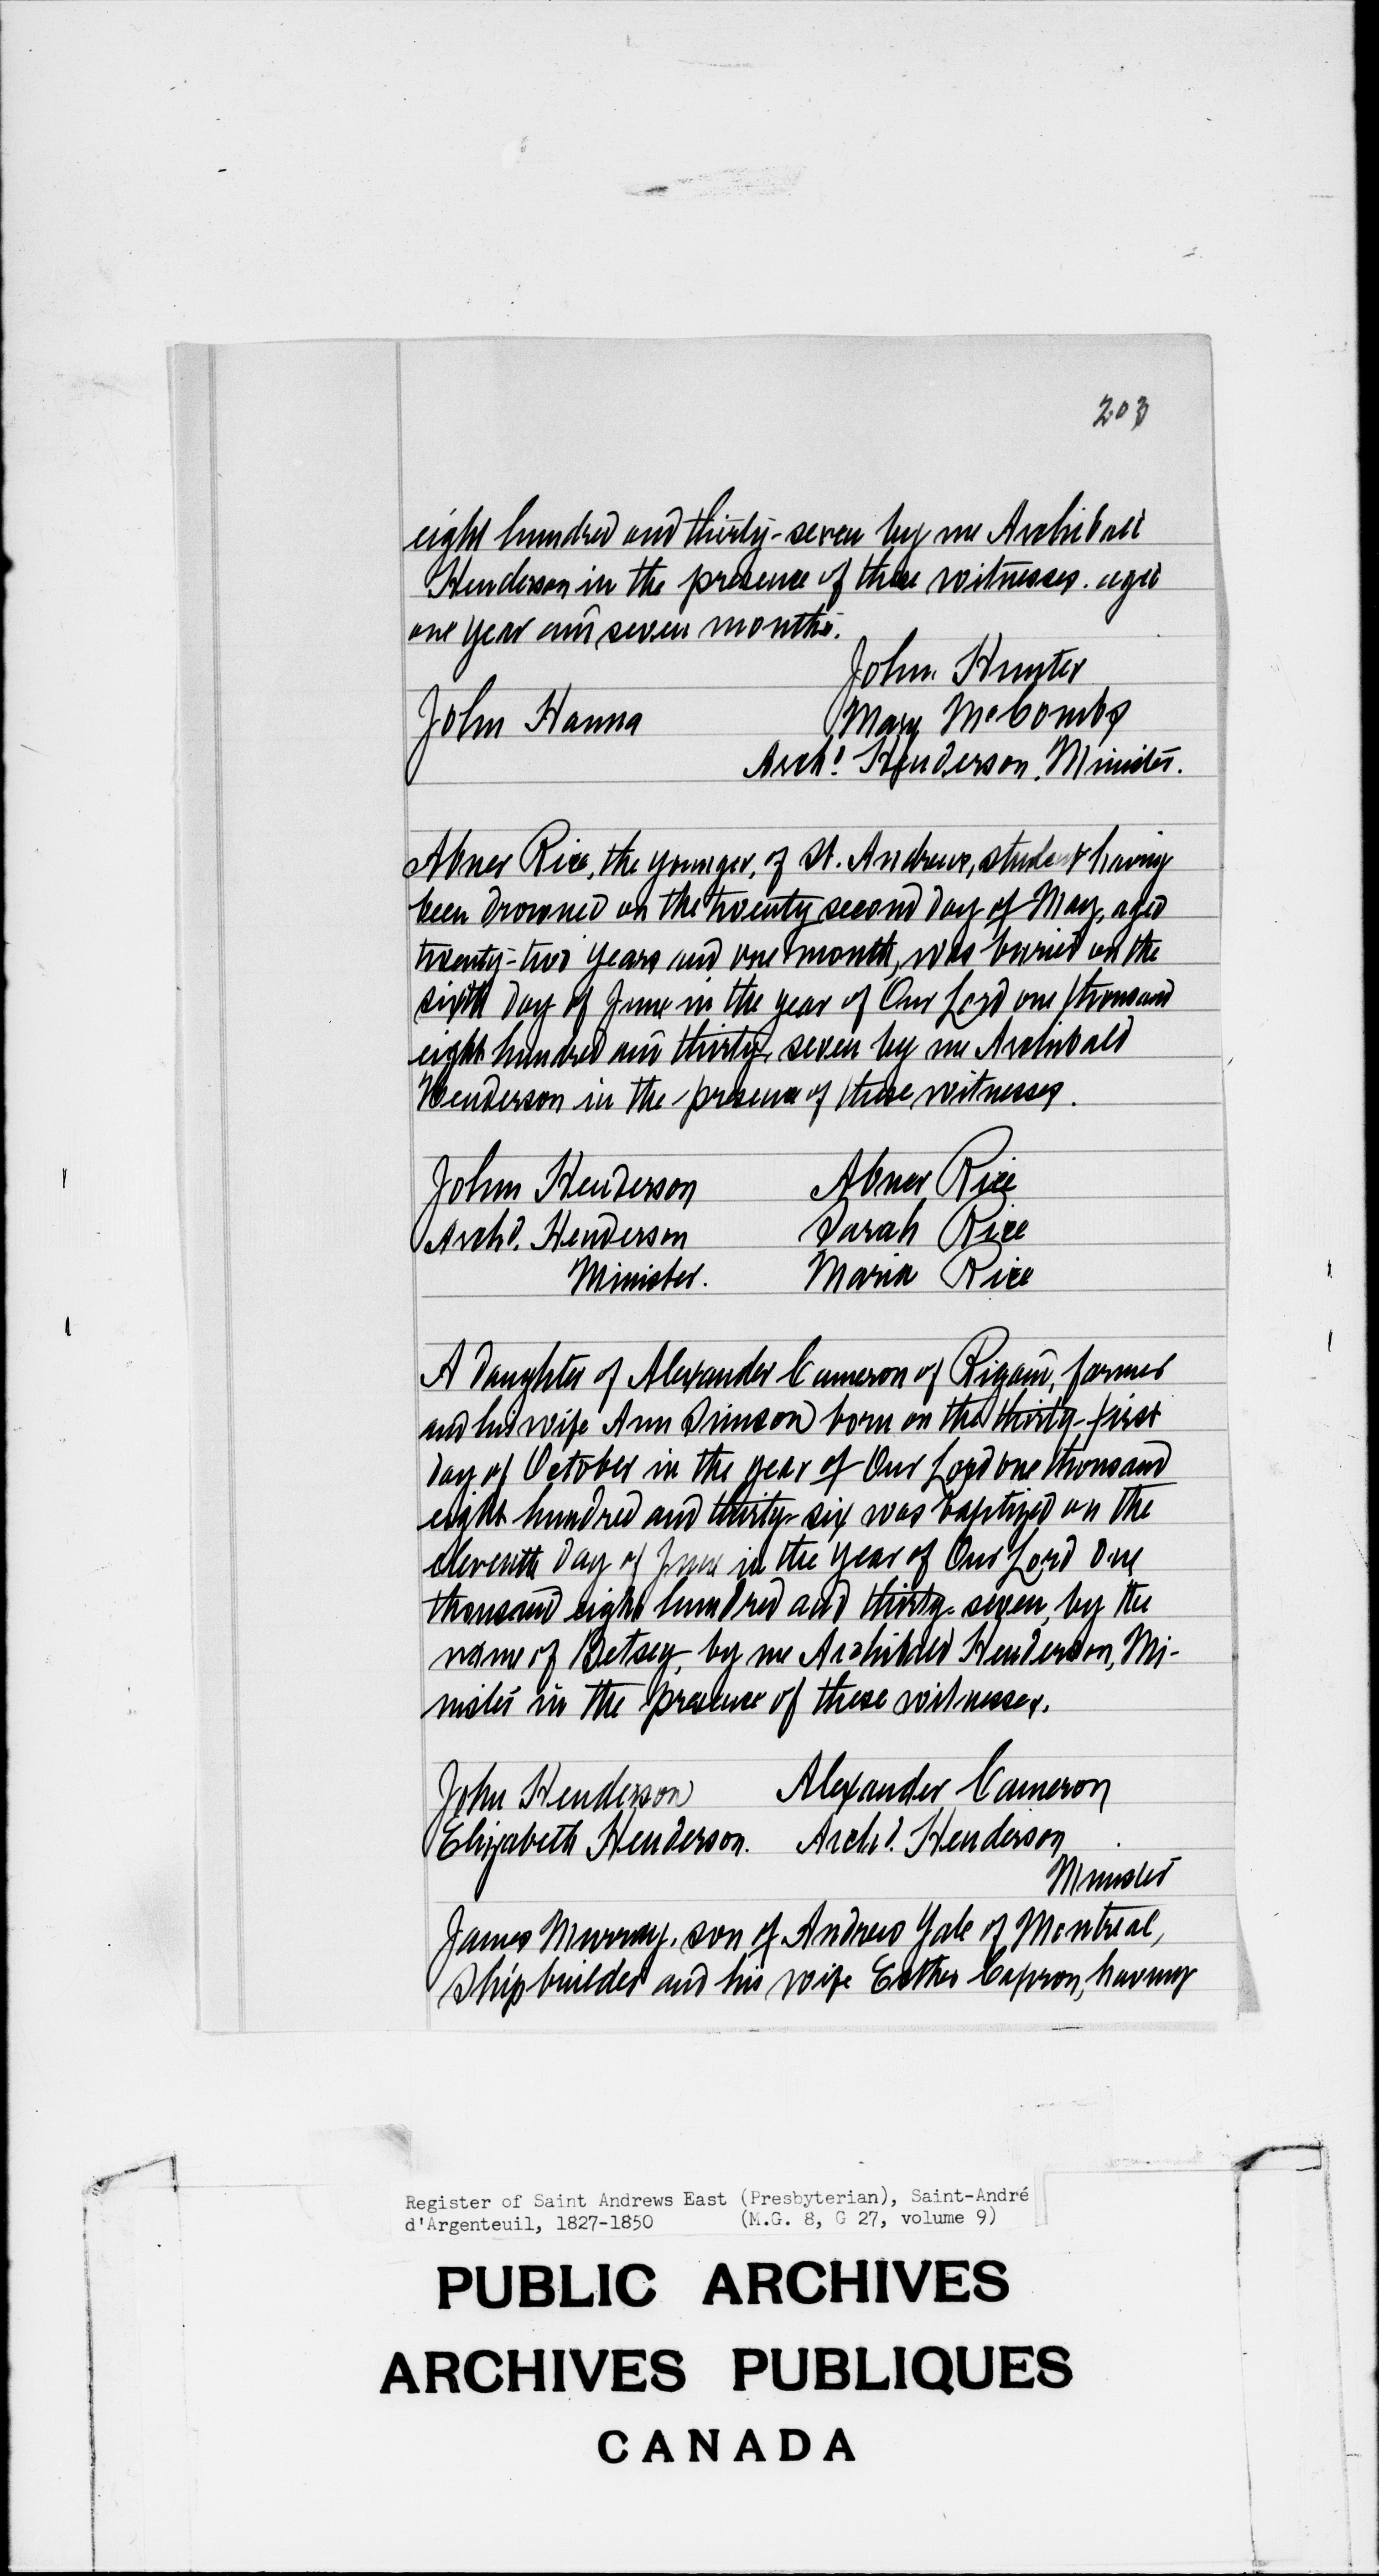 203
eight hundred and thirty-seven by me Archibald
Henderson in the presence of these witnesses. aged
one year and seven months.
John Hunter
John Hanna Mary McCombs
Archd. Henderson, Minister.
Abner Rice, the younger, of St. Andrews, student having
been drowned on the twenty second day of May, aged
twenty-two years and one month, was buried on the
sixth day of June in the year of Our Lord one thousand
eight hundred and thirty-seven by me Archibald
Henderson in the presence of these witnesses.
John Henderson Abner Rice
Archd. Henderson Sarah Rice
Minister. Maria Rice
A daughter of Alexander Cameron of Rigaud, farmer
and his wife Ann born on the thirty-first
day of October in the year of Our Lord one thousand
eight hundred and thirty-six was baptized on the
eleventh day of June in the year of Our Lord one
thousand eight hundred and thirty-seven, by the
name of Betsey, by me Archibald Henderson, Mi-
nister in the presence of these witnesses.
John Henderson Alexander Cameron
Elizabeth Henderson. Archd. Henderson
Minister
James Murray, son of Andrew Yale of Montreal,
Shipbuilder and his wife Esther Capron, having
Register of Saint Andrews East (Presbyterian), Saint-André
d'Argenteuil, 1827-1850 (M.G. 8, G 27, volume 9)
PUBLIC ARCHIVES
ARCHIVES PUBLIQUES
CANADA